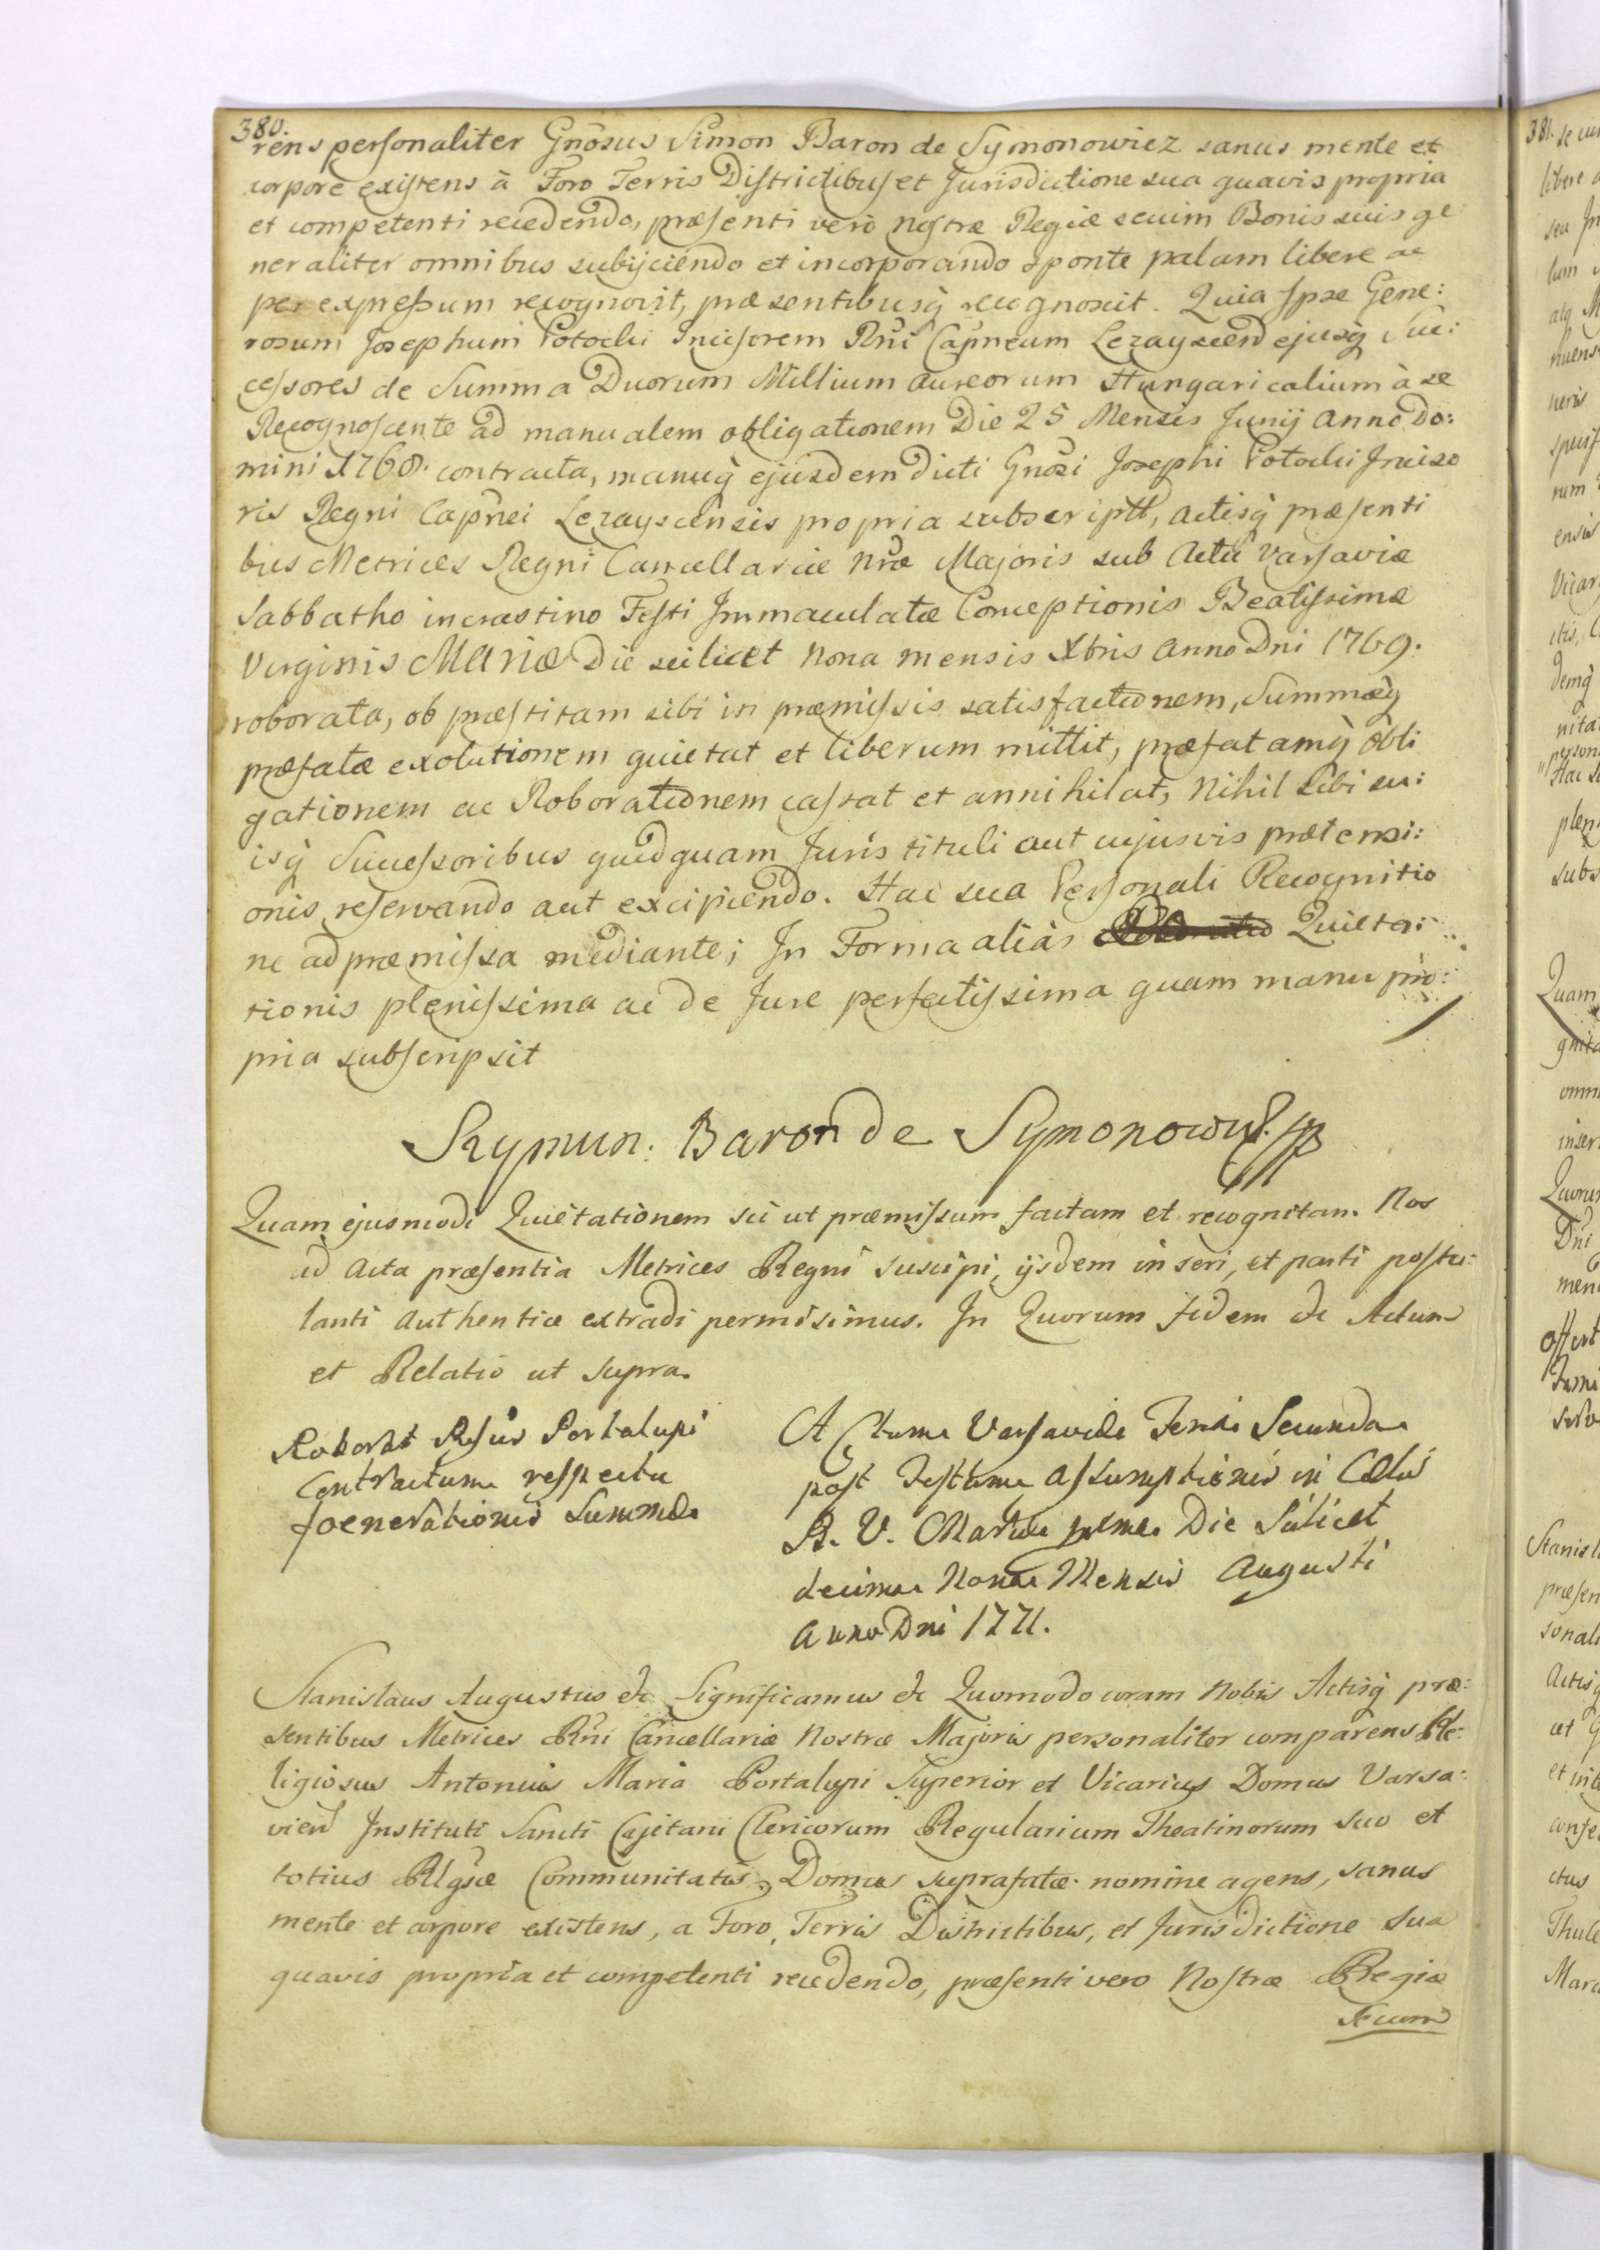 380.
rens personaliter Gnosus Simon Baron de Symonowicz sanus mente et
corpore existens à Foro Terris Districtibus et Jurisdictione sua quavis propria
et competenti recedendo, præsenti verò nostræ Regiæ secum Bonis suis ge
neraliter omnibus subijciendo et incorporando sponte palam libere ac
per expressum recognovit, præsentibusq recognoscit. Quia Ipse Gene:
rosum Josephum Potocki Incisorem Rni Capneum Lezayscen ejusq Suc:
cessores de Summa Duorum Millium aureorum Hungaricalium à se
Recognoscente ad manualem obligationem Die 25 Mensis Junij Anno Do:
mini 1768. contracta, manuq ejusdem dicti Gnosi Josephi Potocki Inciso
ris Regni Capnei Lezayscensis propria subscriptt, actisq præsenti
bus Metrices Regni Cancellariæ nræ Majoris sub Actu Varsaviæ
Sabbatho in crastino Festi Immaculatæ Conceptionis Beatissimæ
Virginis Mariæ Die scilicet nona mensis Xbris Anno Dni 1769.
roborata, ob præstitam sibi in præmissis satisfactionem, Summæq
præfatæ exolutionem quietat et liberum mittit, præfatamq obli
gationem ac Roborationem cassat et annihilat, nihil sibi su:
isq Successoribus quidquam Juris tituli aut cujusvis prætensi:
onis reservando aut excipiendo. Hac sua Personali Recognitio
ne ad præmissa mediante; In Forma aliàs Quieta:
tionis plenissima ac de Jure perfectissima quam manu pro:
pria subscripsit
Szymun: Baron de Symonowicz mp
Quam ejusmodi Quietationem sic ut præmissum factam et recognitam Nos
ad Acta præsentia Metrices Regni suscipi, ijsdem inseri, et parti postu:
lanti Authentice extradi permisimus. In Quorum fidem etc Actum
et Relatio ut supra.
Roborat Rlsus Portalupi
Contractum respectu
foenerationis Summæ
Actum Varsaviæ Feria Secunda
post Festum Assumptionis in Cælis
B. V. Mariæ prima Die Scilicet
decima Nona Mensis Augusti
Anno Dni 1771.
Stanislaus Augustus etc Significamus etc Quomodo coram Nobis Actisq præ:
sentibus Metrices Rni Cancellariæ Nostræ Majoris personaliter comparens Re:
ligiosus Antonius Maria Portalupi Superior et Vicarius Domus Varsa:
vien Instituti Sancti Cajetani Clericorum Regularium Theatinorum suo et
totius Rlgsæ Communitatis Domus suprafatæ nomine agens, sanus
mente et corpore existens, a Foro, Terris Districtibus, et Jurisdictione sua
quavis propria et competenti recedendo, præsenti vero Nostræ Regiæ
Secum
381.